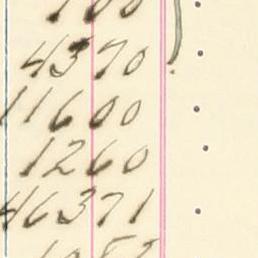 100
4370
11600
1260
46371